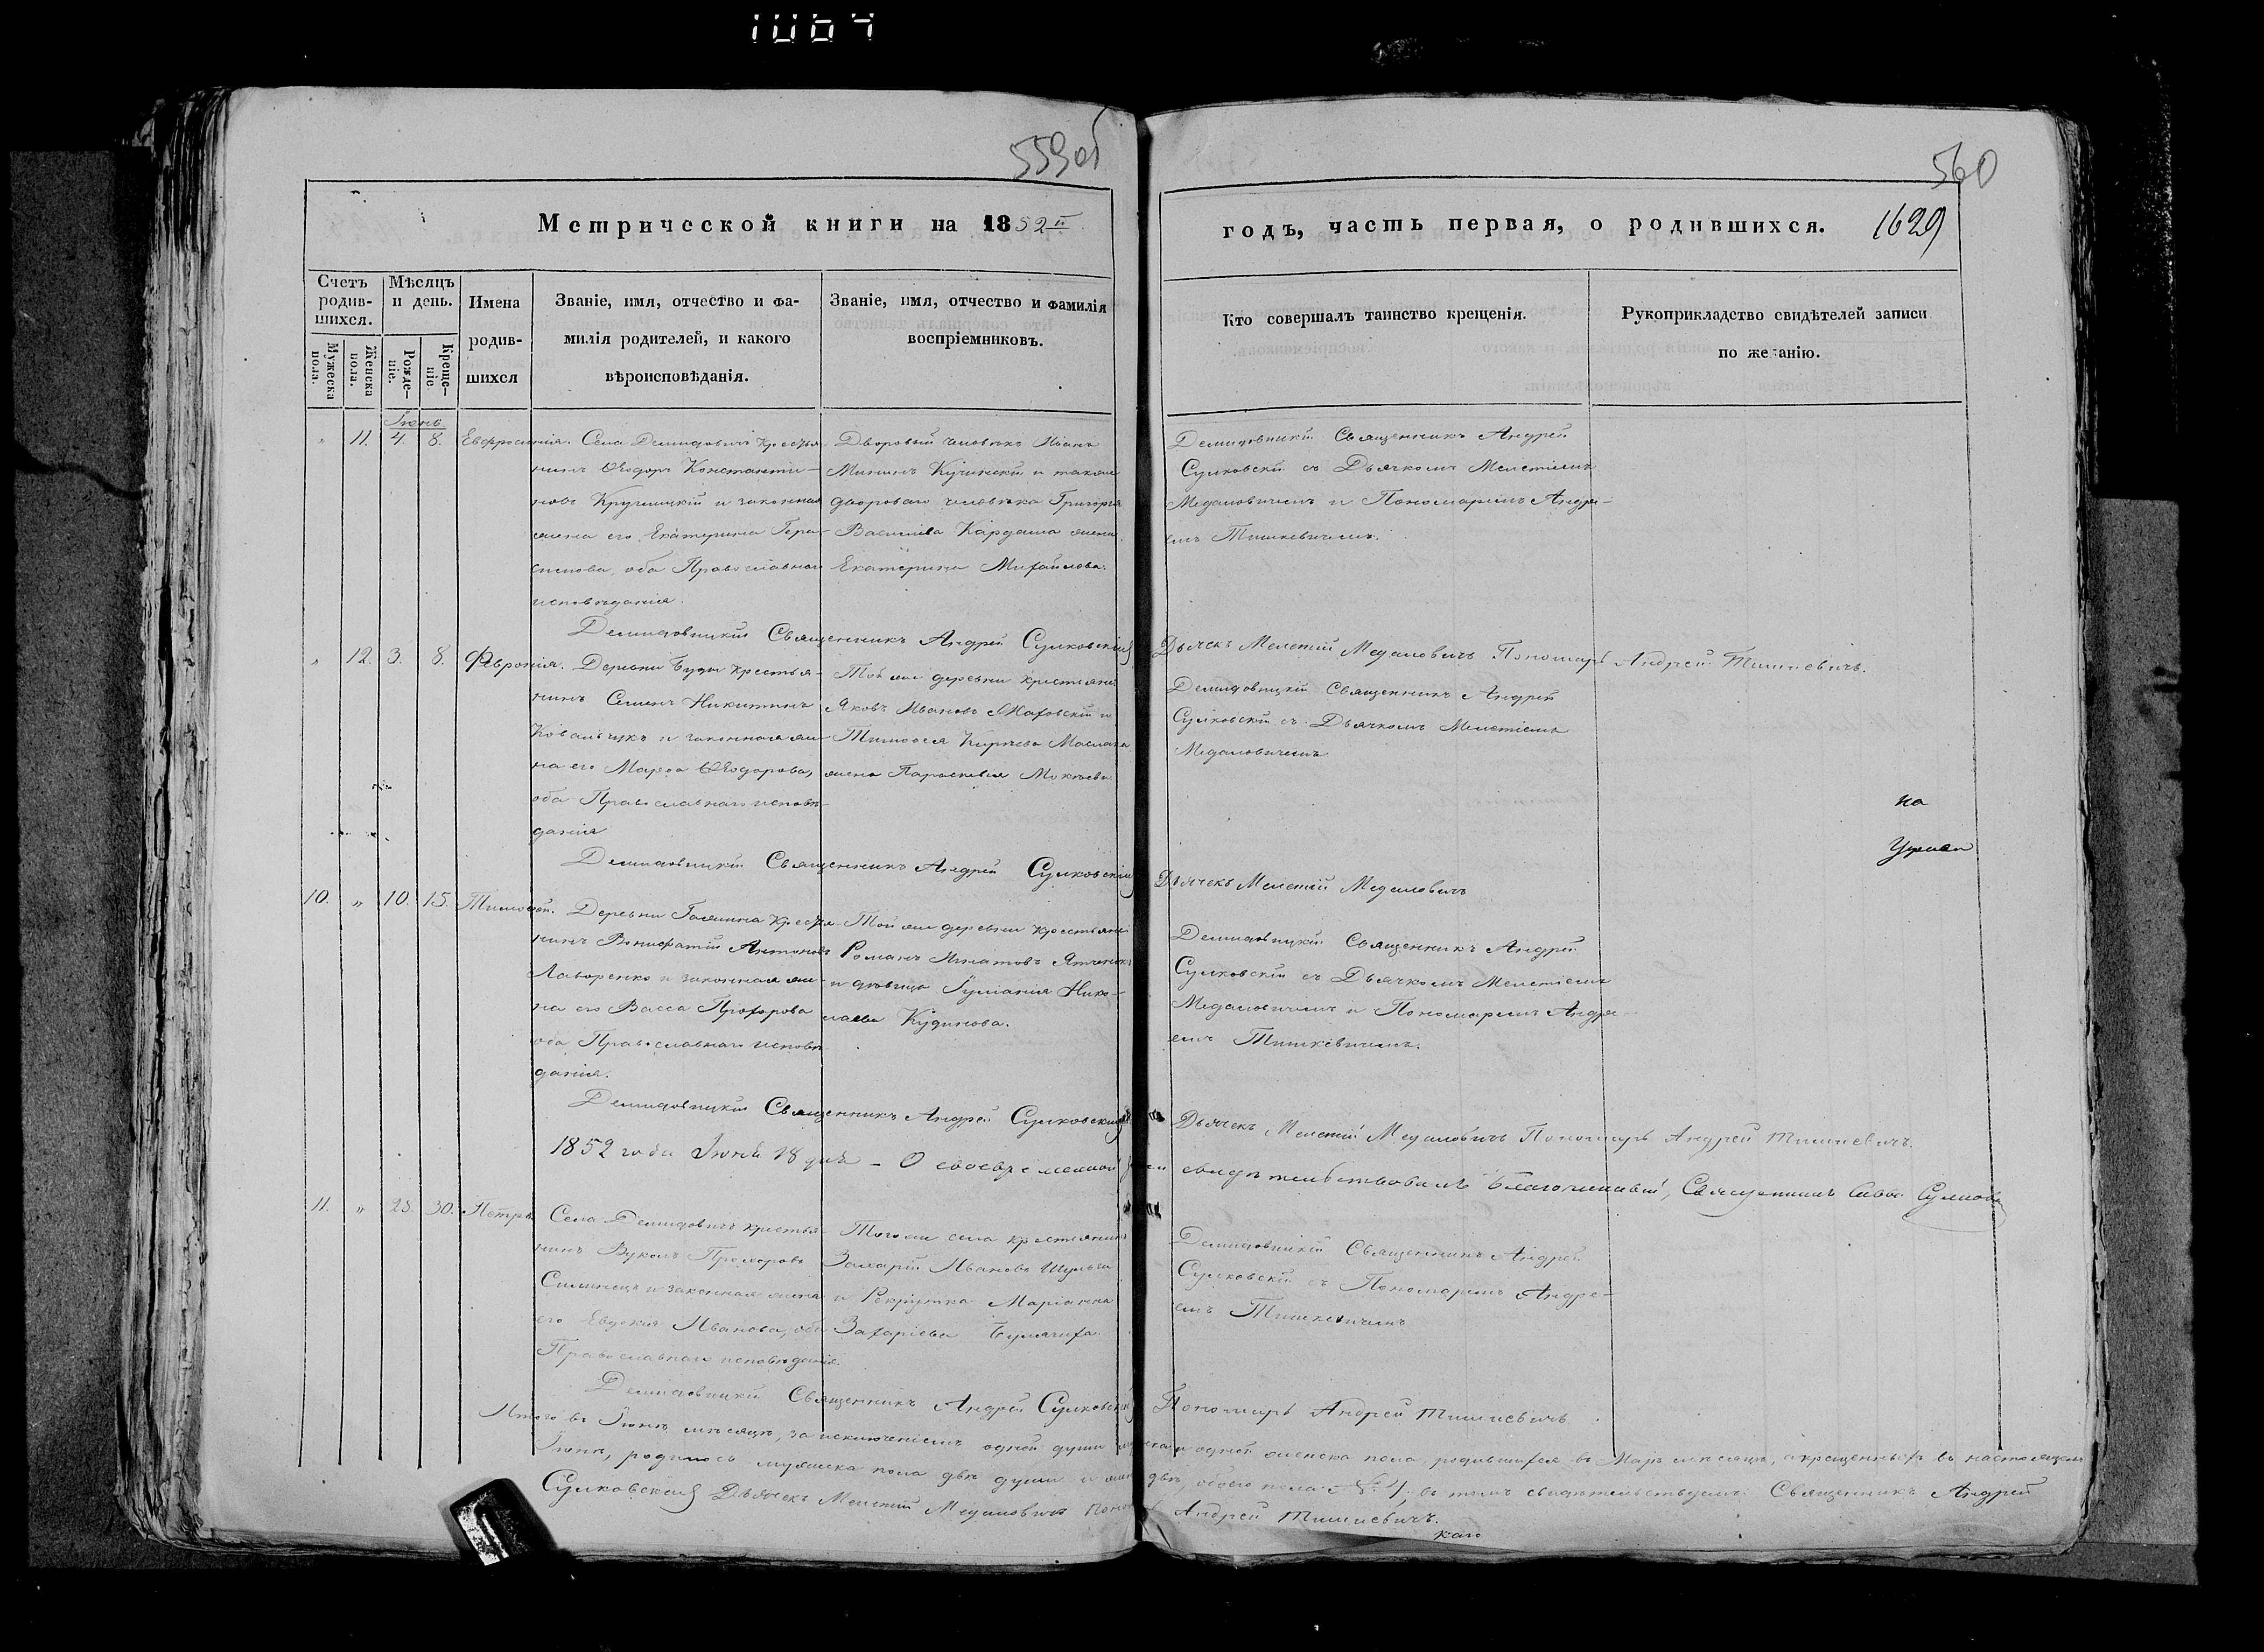 559об
560
Метрической книги на 1852й
годъ, часть первая, о родившихся. 1629
Счетъ родив-шихся.
Мужеска пола.
Женска пола.
Мѣсяцъ и день.
Рожде-ніе.
Креще-ніе
Имена родив-шихся
Званіе, имя, отчество и фа-
милія родителей, и какого
вѣроисповѣданія.
Званіе, имя, отчество и фамилія
воспріемниковъ.
Кто совершалъ таинство крещенія.
Рукоприкладство свидѣтелей записи
по желанію.
Іюнь
" 11. 4. 8. Евфросинія.
Села Демидовичъ кресть-
янинъ Ѳеодоръ Константи-
новъ Кручицкій и законная
жена его Екатерина Гера-
симова, оба Православнаго
исповѣданія.
Дворовый человѣкъ Иванъ
Мининъ Кучинскій и такого
двороваго человѣка Григорія
Васильева Кардаша жена
Екатерина Михайлова.
Демидовицкій Священникъ Андрей
Сулковскій съ Дьячкомъ Мелетіемъ
Медаловичемъ и Пономаремъ Андре-
емъ Тишкевичемъ.
Демидовицкій Священникъ Андрей Сулковскій Дьячекъ Мелетій Медаловичъ Пономарь Андрей Тишкевичъ.
" 12. 3. 8. Февронія.
Деревни Буды крестья-
нинъ Семенъ Никитинъ
Ковальчукъ и законная же-
на его Марѳа Ѳеодорова,
оба Православнаго исповѣ-
данія
Той же деревни крестьяни
Яковъ Ивановъ Маховскій и
Тимоѳея Кирѣева Маслака
жена Параскевія Мокѣева
Демидовицкій Священникъ Андрей
Сулковскій съ Дьячкомъ Мелетіемъ
Медаловичемъ
на
Демидовицкій Священникъ Андрей Сулковскій Дьячекъ Мелетій Медаловичъ
10. " 10. 15. Тимоѳей.
Деревни Галина крестья-
нинъ Вонифатій Антоновъ
Лавренко и законная же-
на его Васса Прохорова
оба Православнаго исповѣ-
данія.
Той же деревни крестьяни
Романъ Игнатовъ
и дѣвица Іуліанія Нико-
лаева Кудинова.
Демидовицкій Священникъ Андрей
Сулковскій съ Дьячкомъ Мелетіемъ
Медаловичемъ и Пономаремъ Андре-
емъ Тишкевичемъ.
Демидовицкій Священникъ Андрей Сулковскій Дьячекъ Мелетій Медаловичъ Пономарь Андрей Тишкевичъ.
1852 года Іюня 18 дня - О своевременной свидѣтельствовалъ Благочинный, Священникъ Савва
11. " 23. 30. Петръ
Села Демидовичъ крестья-
нинъ Вуколъ Прохоровъ
Силинецъ и законная жена
его Евдокія Иванова, оба
Православнаго исповѣданія.
Того же села крестьянинъ
Захарій Ивановъ Шульга
и Рекрутка Маріанна
Захаріева
Демидовицкій Священникъ Андрей
Сулковскій съ Пономаремъ Андре-
емъ Тишкевичемъ
Демидовицкій Священникъ Андрей Сулковскій Пономарь Андрей Тишкевичъ.
Итого въ Іюнѣ мѣсяцѣ, за исключеніемъ одной души и одной женска пола, родившихся въ Маѣ мѣсяцѣ, а крещенныхъ въ настоящемъ
Іюнѣ, родилось мужеска пола двѣ души и двѣ, обоего пола № 4, въ томъ свидѣтельствуемъ Священникъ Андрей
Сулковскій Дьячекъ Мелетій Медаловичъ Андрей Тишкевичъ.